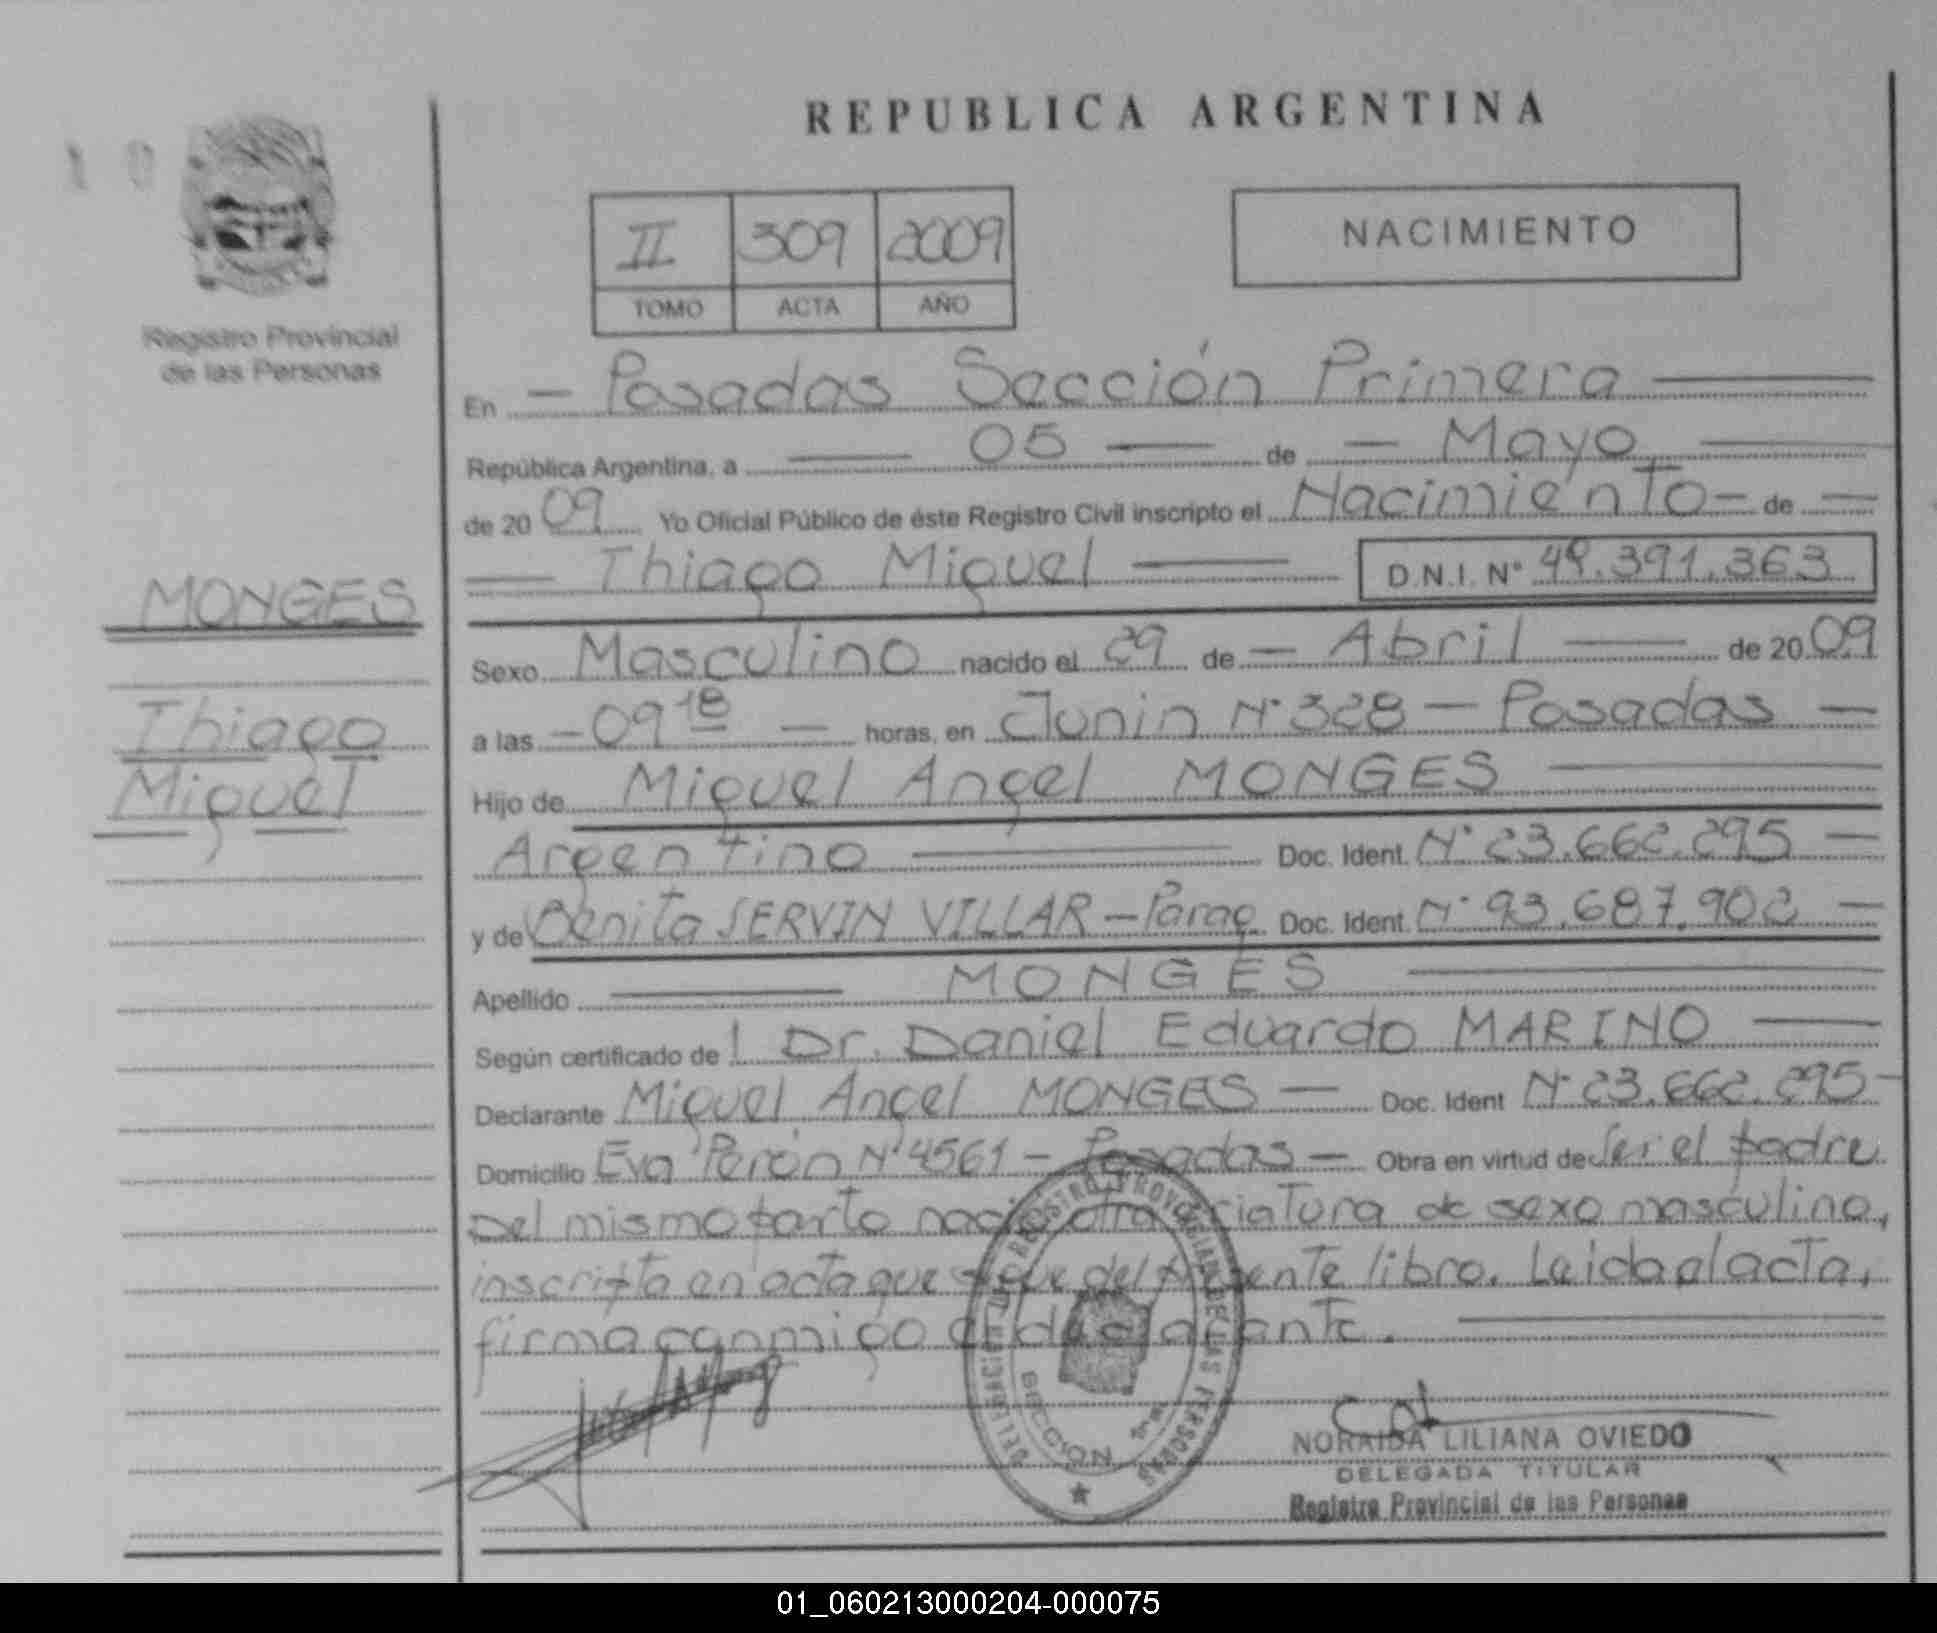 REPUBLICA ARGENTINA
10
Registro Provincial
de las Personas
II 309 2009
TOMO ACTA AÑO
NACIMIENTO
En — Posadas Sección Primera —
República Argentina, a — 05 — de — Mayo —
de 20 09 Yo Oficial Público de éste Registro Civil inscripto el Nacimiento — de —
— Thiago Miguel — D.N.I. N° 49.391.363
MONGES
Thiago
Miguel
Sexo Masculino nacido el 29 de — Abril — de 20 09
a las — 09 18 — horas, en Junin N° 328 — Posadas —
Hijo de Miguel Angel MONGES —
Argentino — Doc. Ident. N° 23.662.295 —
y de Benita SERVIN VILLAR — Parag. Doc. Ident. N° 93.687.902 —
Apellido — MONGES —
Según certificado de l Dr. Daniel Eduardo MARINO —
Declarante Miguel Angel MONGES — Doc. Ident N° 23.662.295 —
Domicilio Eva Perón N° 4561 — Posadas — Obra en virtud de ser el padre
Del mismo parto nació otra criatura de sexo masculino,
inscripta en acta que sigue del presente libro. Leida el acta,
firma conmigo el declarante. —
DELEGACION DE REGISTRO PROVINCIAL DE LAS PERSONAS
SECCION
NORAIDA LILIANA OVIEDO
DELEGADA TITULAR
Registro Provincial de las Personas
01_060213000204-000075